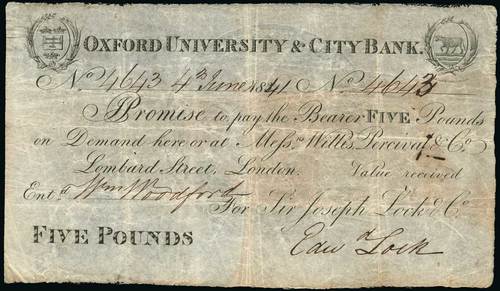 OXFORD UNIVERSITY & CITY BANK.
No. 4643 4th June 1841 No. 4643
I Promise to pay the Bearer FIVE Pounds
on Demand here or at Messrs Willis, Percival & Co.
Lombard Street, London. Value received
Entd. Wm Woodford For Sir Joseph Lock & Co.
FIVE POUNDS Edwd Lock